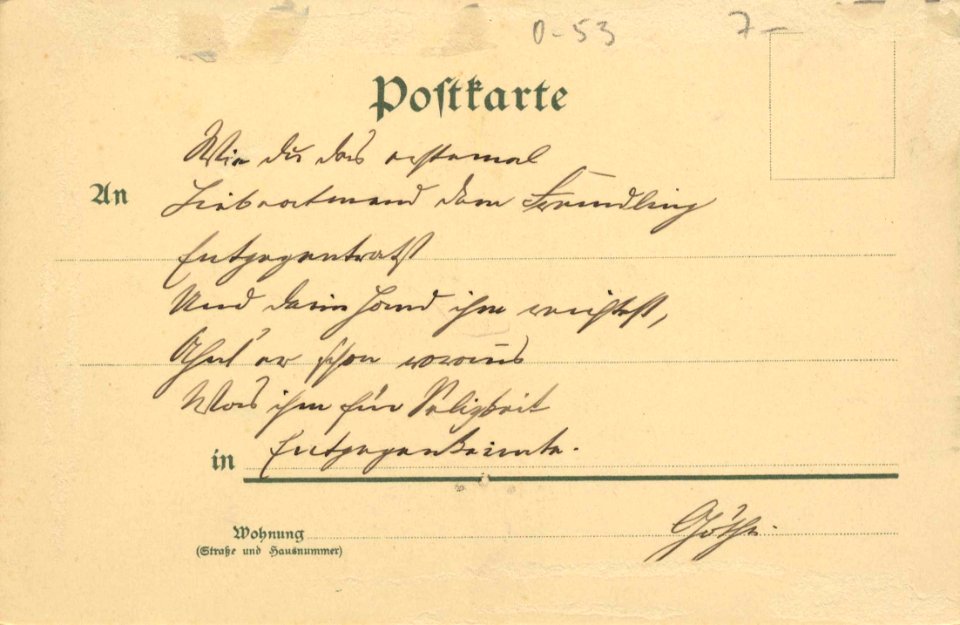 0-53 7-
Postkarte
Wie du das erstemal
An
Liebeatmend dem Fremdling
Entgegentratst
Und deine Hand ihm reichtest,
Fühlt' er schon voraus
Was ihm für Seligkeit
in Entgegenkeimte.
Göthe.
Wohnung
(Straße und Hausnummer)